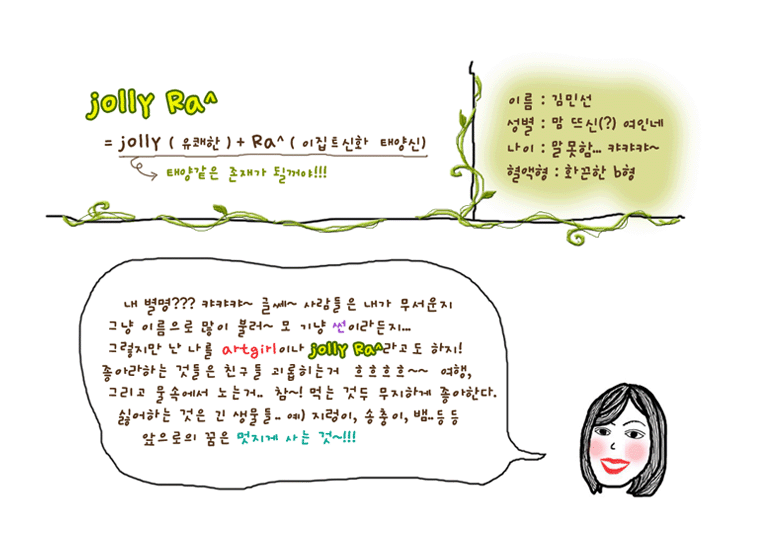 jolly Ra^
= jolly ( 유쾌한 ) + Ra^ ( 이집트신화 태양신)
태양같은 존재가 될꺼야!!!
이름 : 김민선
성별 : 맘 뜨신(?) 여인네
나이 : 말못함... 캬캬캬~
혈액형 : 화끈한 b형
내 별명??? 캬캬캬~ 글쎄~ 사람들은 내가 무서운지
그냥 이름으로 많이 불러~ 모 기냥 썬이라든지...
그렇지만 난 나를 artgirl이나 jolly Ra^라고도 하지!
좋아라하는 것들은 친구들 괴롭히는거 흐흐흐흐~~ 여행,
그리고 물속에서 노는거.. 참~! 먹는 것두 무지하게 좋아한다.
싫어하는 것은 긴 생물들.. 예) 지렁이, 송충이, 뱀..등등
앞으로의 꿈은 멋지게 사는 것~!!!